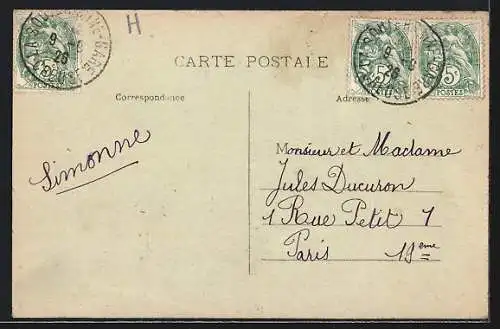 H
CARTE POSTALE
Correspondance
Adresse
Simonne
Monsieur et Madame
Jules Ducuron
1 Rue Petit 1
Paris 19eme
5c
POSTES